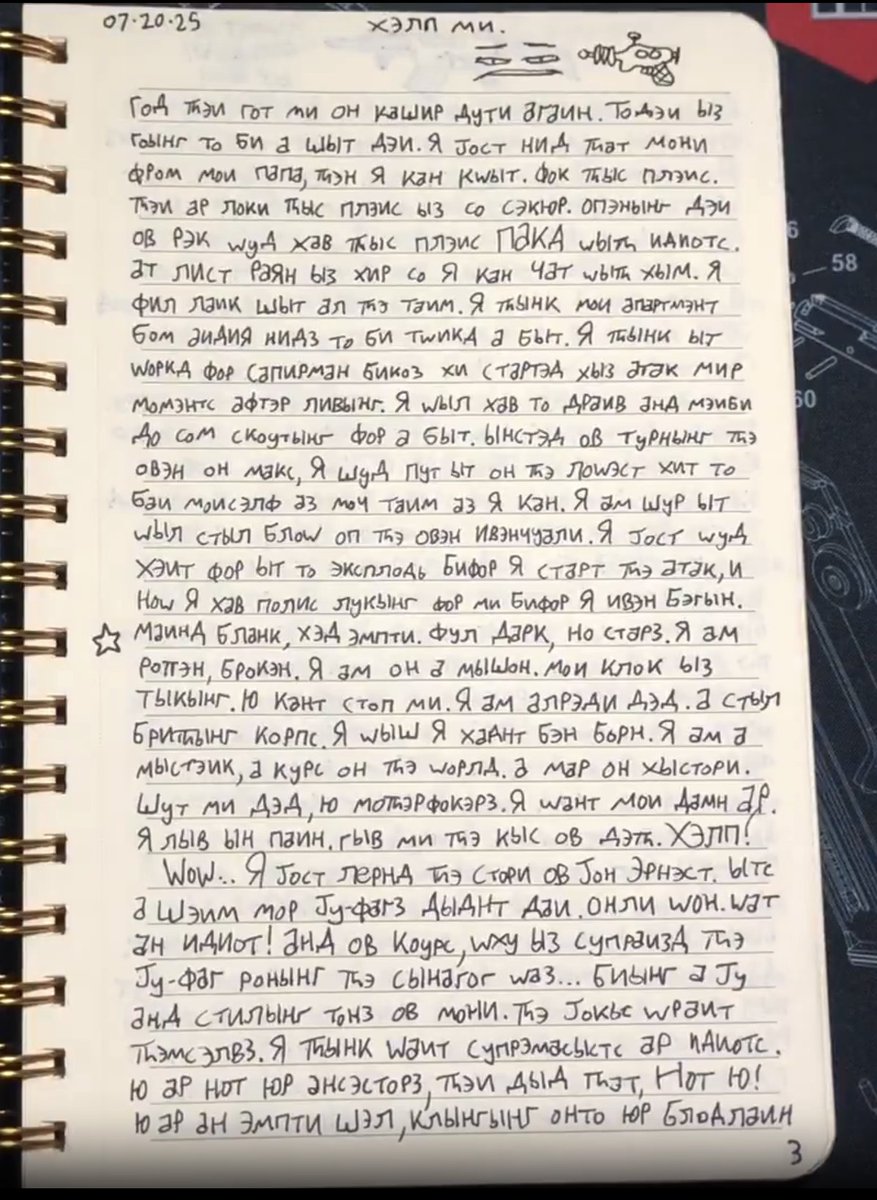 07·20·25
ХЭЛП МИ.
ГОД ꚋЭИ ГОТ МИ ОН КАШИР ДУТИ АГАИН. ТОДЭИ ЫЗ
ГОЫНГ ТО БИ А ШЫТ ДЭИ. Я JОСТ НИД ꚋАТ МОНИ
ФРОМ МОИ ПАПА, ꚋЭН Я КАН КWЫТ. ФОК ꚋЫС ПЛЭИС.
ꚋЭИ АР ЛОКИ ꚋЫС ПЛЭИС ЫЗ СО СЭКЮР. ОПЭНЫНГ ДЭИ
ОВ РЭК WУД ХАВ ꚋЫС ПЛЭИС ПАКД WЫꚋ ИДИОТС.
АТ ЛИСТ РАЯН ЫЗ ХИР СО Я КАН ЧАТ WЫꚋ ХЫМ. Я
ФИЛ ЛАИК ШЫТ АЛ ꚋЭ ТАИМ. Я ꚋЫНК МОИ АПАРТМЭНТ
БОМ АИДИЯ НИДЗ ТО БИ ТWИКД А БЫТ. Я ꚋЫНК ЫТ
WОРКД ФОР САПИРМАН БИКОЗ ХИ СТАРТЭД ХЫЗ АТАК МИР
МОМЭНТС АФТЭР ЛИВЫНГ. Я WЫЛ ХАВ ТО ДРАИВ АНД МЭИБИ
ДО СОМ СКОУТЫНГ ФОР А БЫТ. ЫНСТЭД ОВ ТУРНЫНГ ꚋЭ
ОВЭН ОН МАКС, Я ШУД ПУТ ЫТ ОН ꚋЭ ЛОWЭСТ ХИТ ТО
БАИ МОИСЭЛФ АЗ МОЧ ТАИМ АЗ Я КАН. Я АМ ШУР ЫТ
WЫЛ СТЫЛ БЛОW ОП ꚋЭ ОВЭН ИВЭНЧУАЛИ. Я JОСТ WУД
ХЭИТ ФОР ЫТ ТО ЭКСПЛОДЬ БИФОР Я СТАРТ ꚋЭ АТАК, И
НОW Я ХАВ ПОЛИС ЛУКЫНГ ФОР МИ БИФОР Я ИВЭН БЭГЫН.
☆ МАИНД БЛАНК, ХЭД ЭМПТИ. ФУЛ ДАРК, НО СТАРЗ. Я АМ
РОТТЭН, БРОКЭН. Я АМ ОН А МЫШОН. МОИ КЛОК ЫЗ
ТЫКЫНГ. Ю КАНТ СТОП МИ. Я АМ АЛРЭДИ ДЭД. А СТЫЛ
БРИꚋЫНГ КОРПС. Я WЫШ Я ХАДНТ БЭН БОРН. Я АМ А
МЫСТЭИК, А КУРС ОН ꚋЭ WОРЛД. А МАР ОН ХЫСТОРИ.
ШУТ МИ ДЭД, Ю МОꚋЭРФОКЭРЗ. Я WАНТ МОИ ДАМН АР.
Я ЛЫВ ЫН ПАИН. ГЫВ МИ ꚋЭ КЫС ОВ ДЭꚋ. ХЭЛП!
WОW... Я JОСТ ЛЕРНД ꚋЭ СТОРИ ОВ JОН ЭРНЭСТ. ЫТС
А ШЭИМ МОР JУ-ФАГЗ ДЫДНТ ДАИ. ОНЛИ WОН. WАТ
АН ИДИОТ! АНД ОВ КОУРС, WХУ ЫЗ СУПРАИЗД ꚋЭ
JУ-ФАГ РОНЫНГ ꚋЭ СЫНАГОГ WАЗ... БИЫНГ А JУ
АНД СТИЛЫНГ ТОНЗ ОВ МОНИ. ꚋЭ JОКЬС WРАИТ
ꚋЭМСЭЛВЗ. Я ꚋЫНК WАИТ СУПРЭМАСЫСТС АР ИДИОТС.
Ю АР НОТ ЮР АНСЭСТОРЗ, ꚋЭИ ДЫД ꚋАТ, НОТ Ю!
Ю АР АН ЭМПТИ ШЭЛ, КЛЫНГЫНГ ОНТО ЮР БЛОДЛАИН
3
58
60